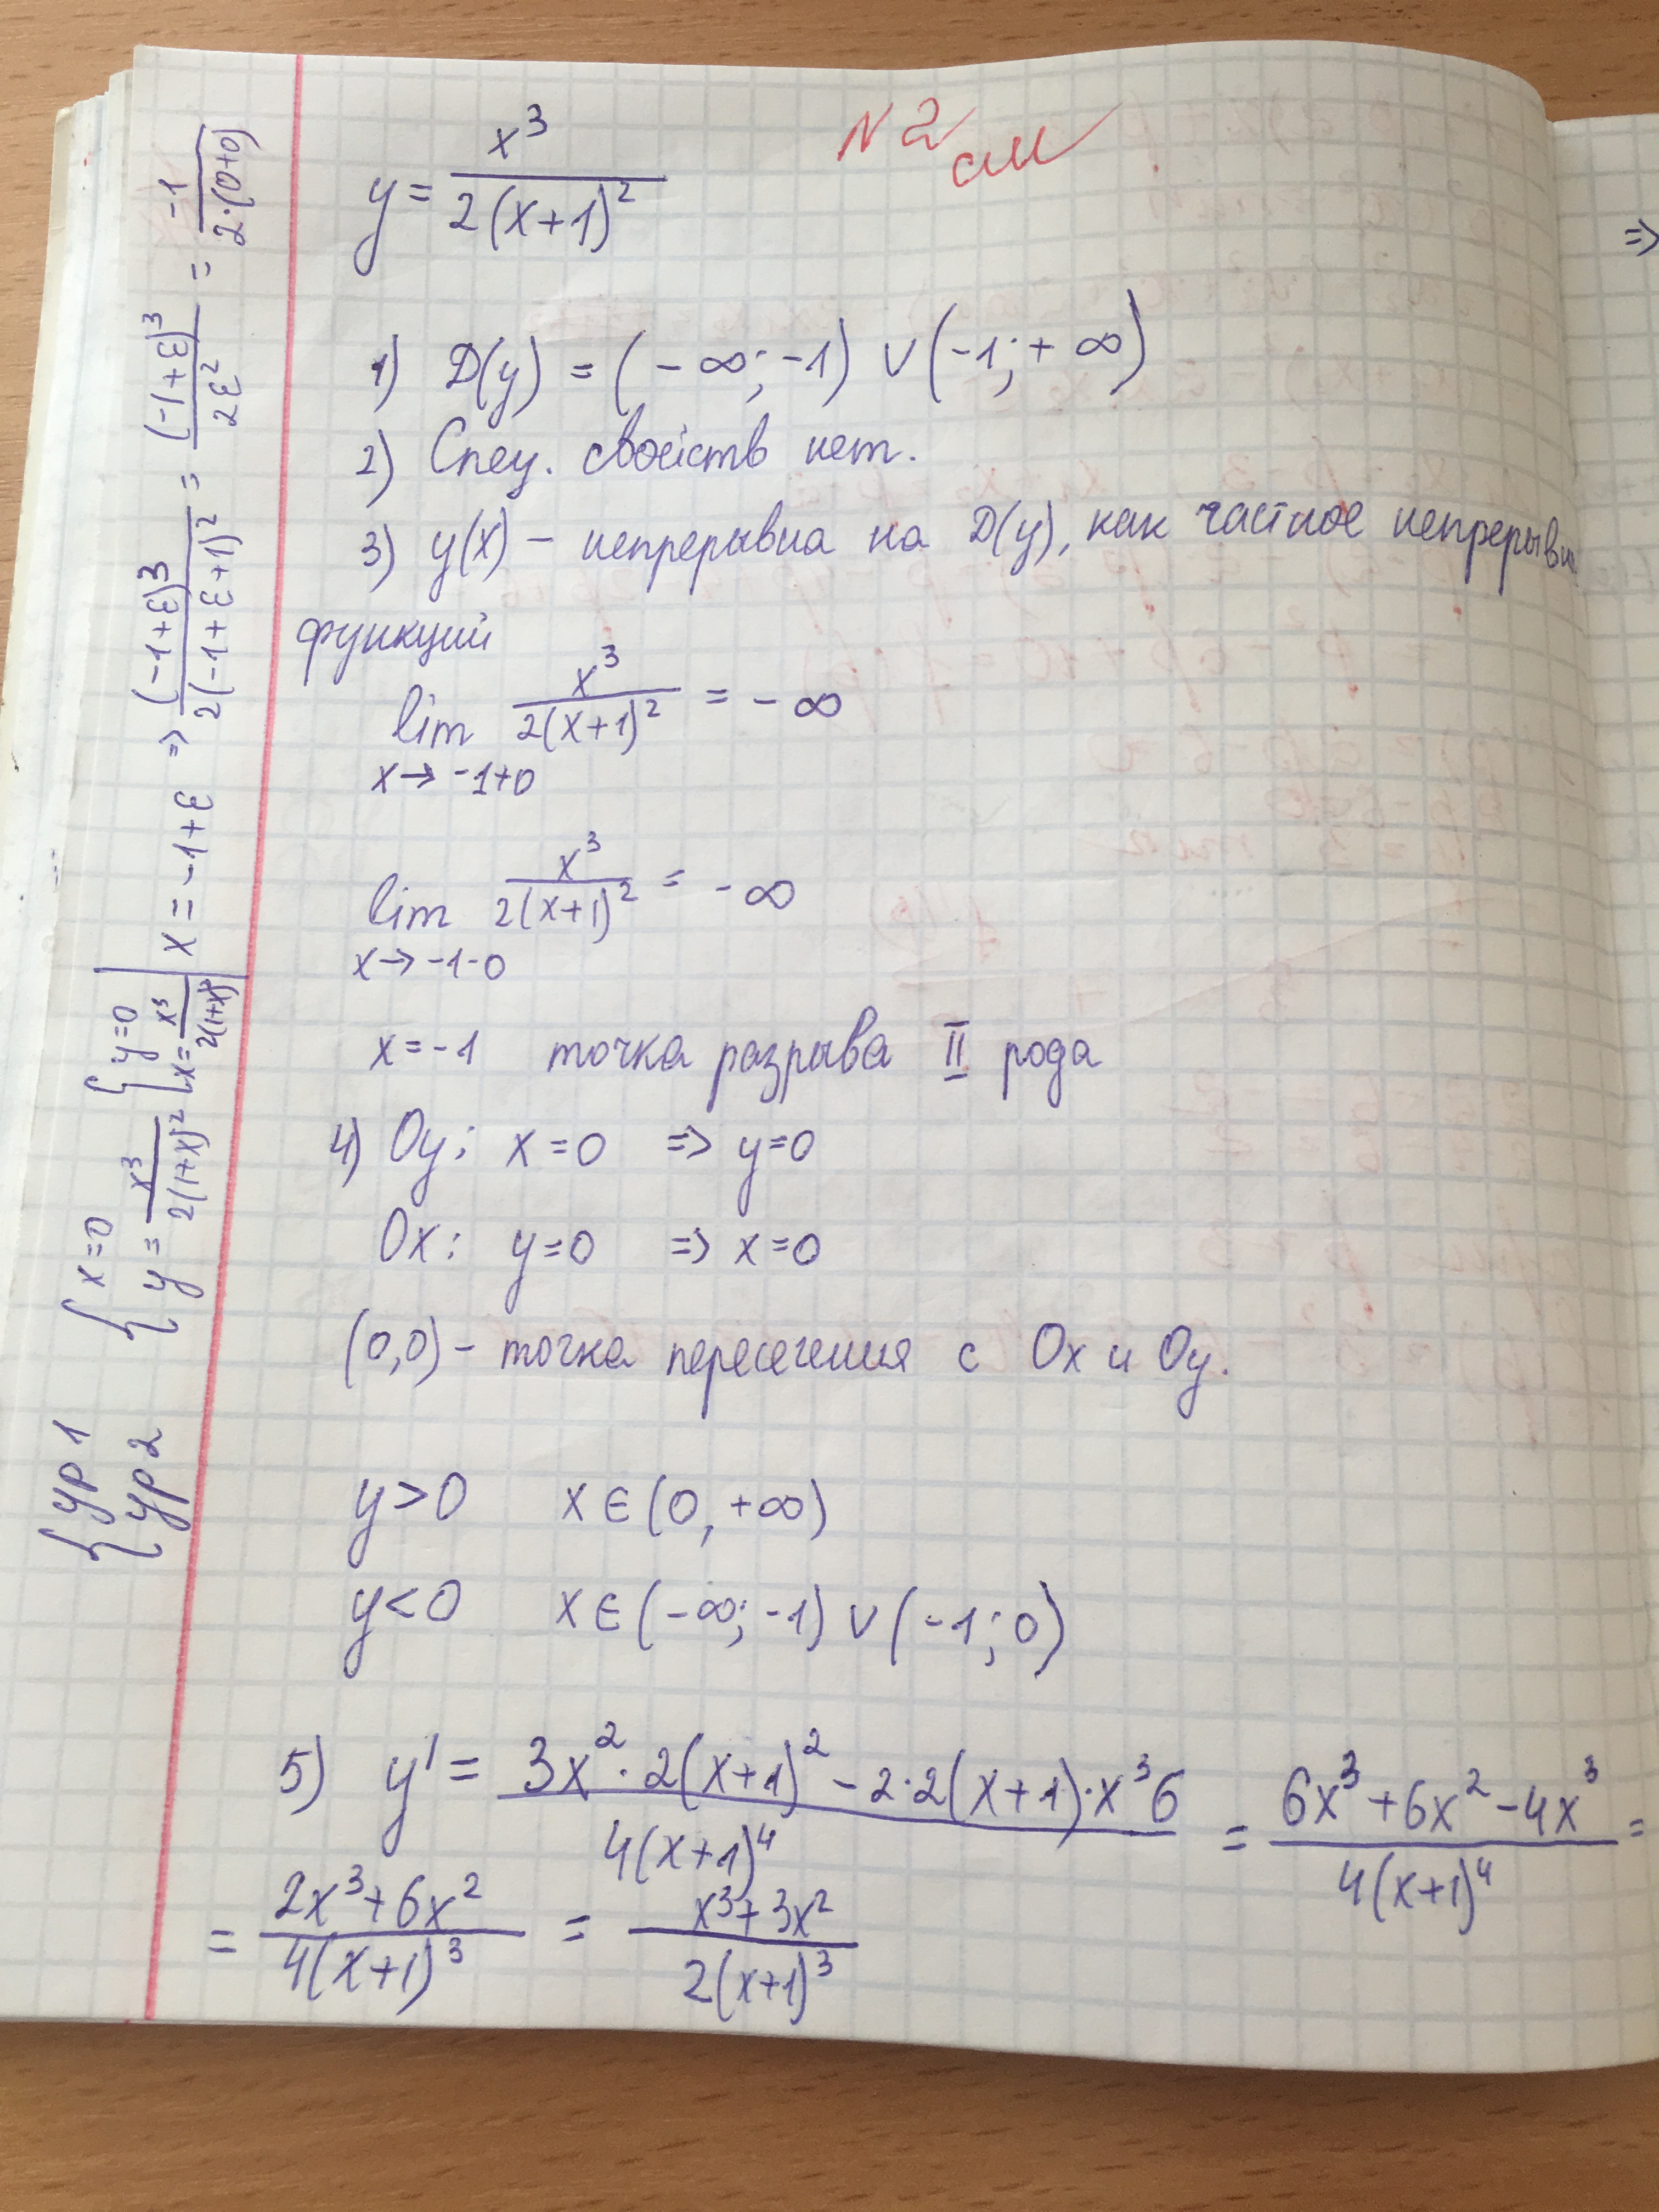 N 2 см
y = x³ / 2(x+1)²
1) D(y) = (-∞; -1) ∪ (-1; +∞)
2) Спец. свойств нет.
3) y(x) - непрерывна на D(y), как частное непрерывн.
функций
lim x³ / 2(x+1)² = -∞
x→ -1+0
lim x³ / 2(x+1)² = -∞
x→ -1-0
x = -1 точка разрыва II рода
4) Oy: x=0 => y=0
Ox: y=0 => x=0
(0,0) - точка пересечения с Ox и Oy.
y>0 x∈(0, +∞)
y<0 x∈(-∞; -1) ∪ (-1; 0)
5) y' = 3x²·2(x+1)² - 2·2(x+1)·x³6 / 4(x+1)⁴ = 6x³+6x²-4x³ / 4(x+1)⁴ =
= 2x³+6x² / 4(x+1)³ = x³+3x² / 2(x+1)³
{ ур 1
ур 2
{ x=0
y = x³ / 2(1+x)²
{ y=0
x = x³ / 2(1+x)²
x = -1+ε => (-1+ε)3 / 2(-1+ε+1)² = (-1+ε)³ / 2ε² = -1 / 2·(0+0)
=>